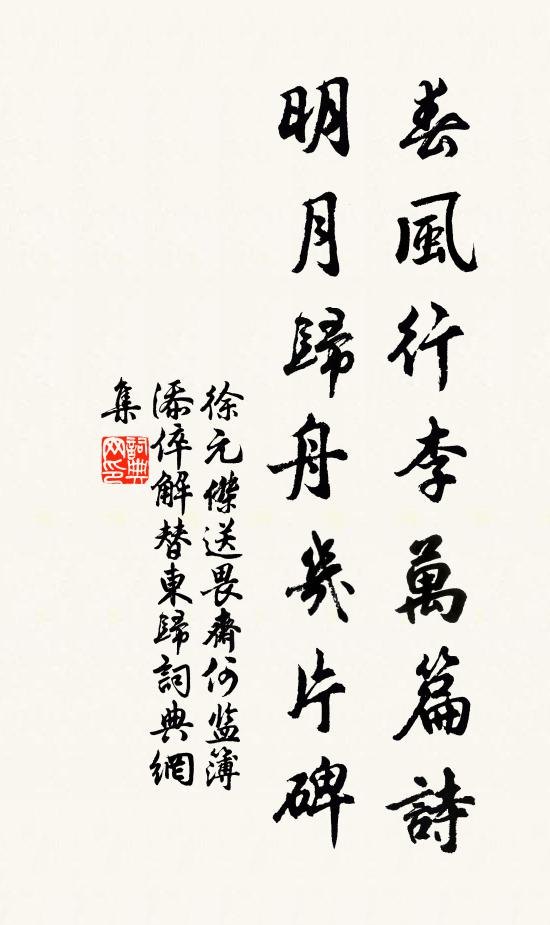 春風行李萬篇詩
明月歸舟幾片碑
徐元傑送畏齋何监簿
添倅解替東歸詞典網
集
詞典
网印